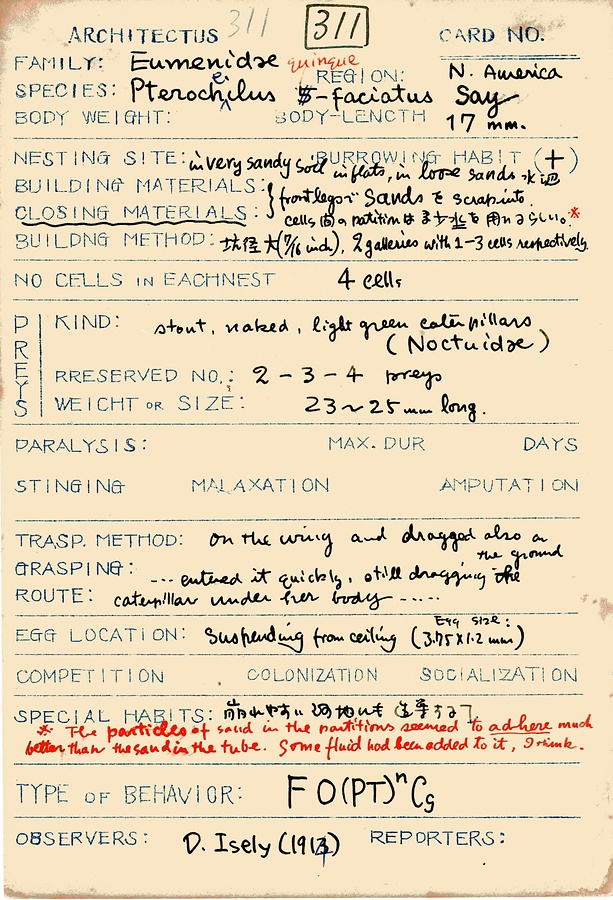 ARCHITECTUS 311 311 CARD NO.
FAMILY: Eumenidae quinque REGION: N. America
SPECIES: Pterocheilus 5-faciatus Say
BODY WEIGHT: BODY-LENGTH 17 mm.
NESTING SITE: in very sandy soil in flats, in loose sands 水辺 BURROWING HABIT (+)
BUILDING MATERIALS: } front legsで Sandsを scrapinto.
CLOSING MATERIALS: cells間のpartitionは 水を用いるらしい。*
BUILDNG METHOD: 坑径大(7/16 inch), 2 galleries with 1-3 cells respectively
NO CELLS IN EACHNEST 4 cells
PREYS
KIND: stout, naked, light green caterpillars
(Noctuidae)
RRESERVED NO.: 2-3-4 preys
WEIGHT OR SIZE: 23~25 mm long.
PARALYSIS: MAX. DUR DAYS
STINGING MALAXATION AMPUTATION
TRASP. METHOD: on the wing and dragged also on
the ground
GRASPING: ... entered it quickly, still dragging the
ROUTE: caterpillar under her body .....
Egg size:
EGG LOCATION: Suspending from ceiling (3.75 X 1.2 mm)
COMPETITION COLONIZATION SOCIALIZATION
SPECIAL HABITS: 崩れやすい
* The particles of sand in the partitions seemed to adhere much
better than the sand in the tube. Some fluid had been added to it, I think.
TYPE OF BEHAVIOR: FO(PT)ⁿCg
OBSERVERS: D. Isely (1913) REPORTERS: